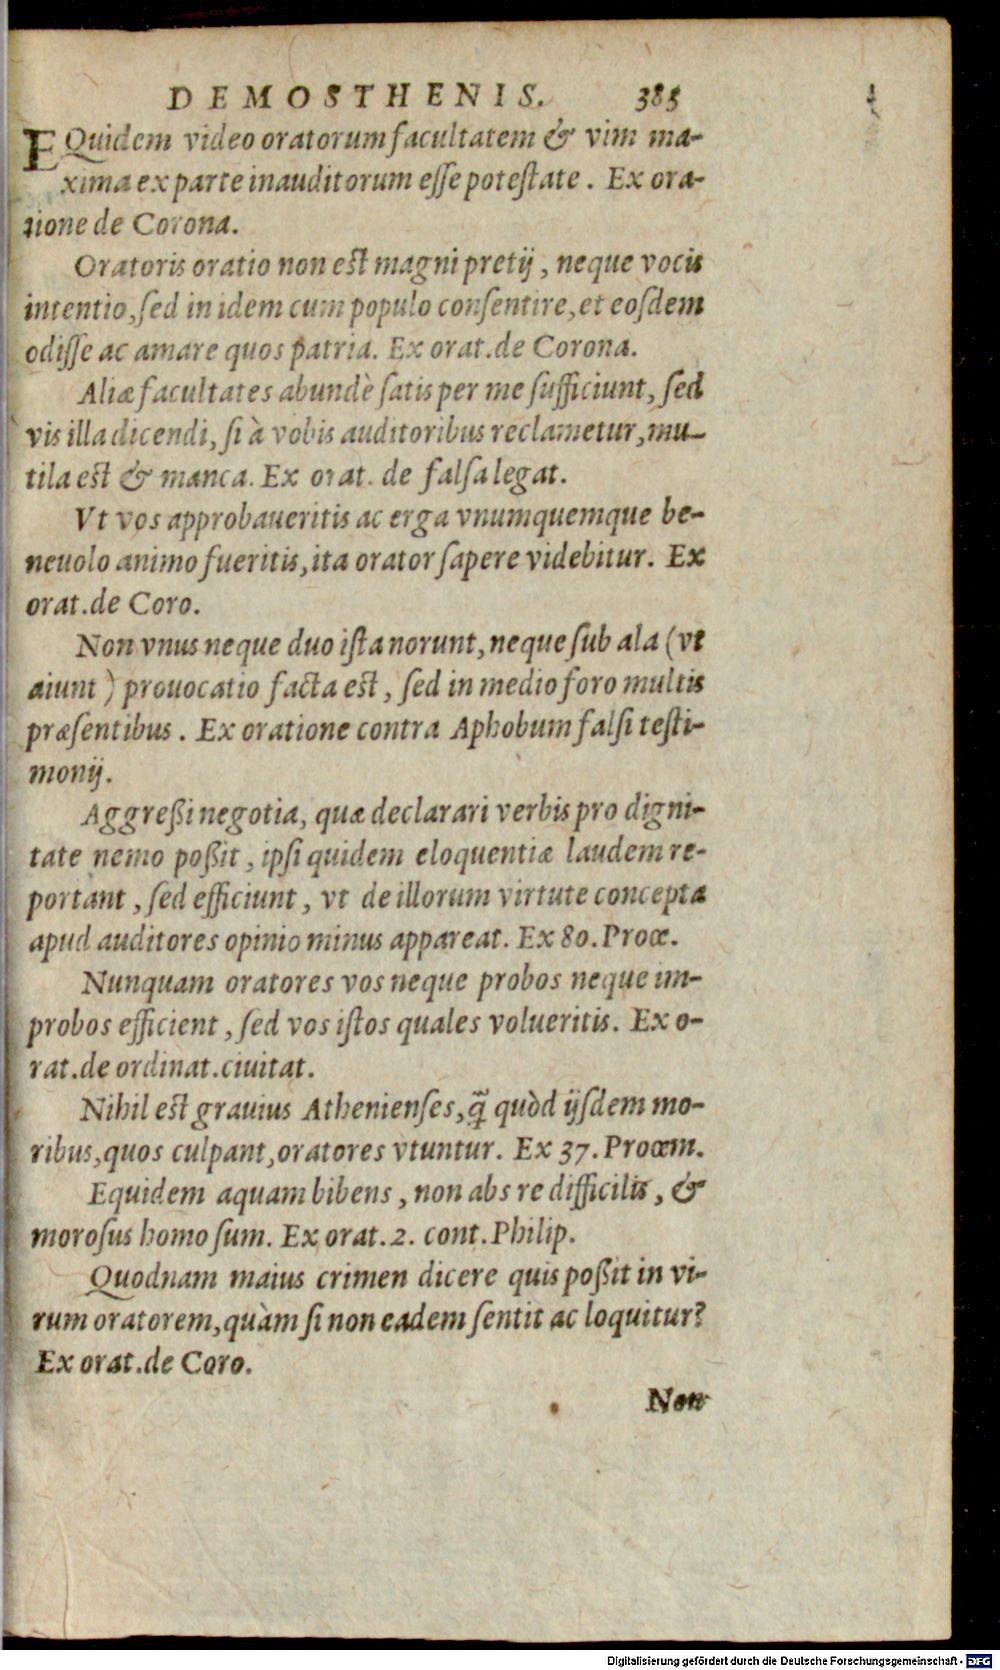 DEMOSTHENIS. 385
EQuidem video oratorum facultatem & vim ma-
xima ex parte in auditorum eſſe poteſtate. Ex ora-
tione de Corona.
Oratoris oratio non eſt magni pretij, neque vocis
intentio, ſed in idem cum populo conſentire, et eoſdem
odiſſe ac amare quos patria. Ex orat. de Corona.
Aliæ facultates abundè ſatis per me ſufficiunt, ſed
vis illa dicendi, ſi à vobis auditoribus reclametur, mu-
tila eſt & manca. Ex orat. de falſa legat.
Vt vos approbaueritis ac erga vnumquemque be-
neuolo animo fueritis, ita orator ſapere videbitur. Ex
orat. de Coro.
Non vnus neque duo iſta norunt, neque ſub ala (vt
aiunt) prouocatio facta eſt, ſed in medio foro multis
præſentibus. Ex oratione contra Aphobum falſi teſti-
monij.
Aggreßi negotia, quæ declarari verbis pro digni-
tate nemo poßit, ipſi quidem eloquentiæ laudem re-
portant, ſed efficiunt, vt de illorum virtute concepta
apud auditores opinio minus appareat. Ex 80. Proœ.
Nunquam oratores vos neque probos neque im-
probos efficient, ſed vos iſtos quales volueritis. Ex o-
rat. de ordinat. ciuitat.
Nihil eſt grauius Athenienſes, q̃ quòd ijſdem mo-
ribus, quos culpant, oratores vtuntur. Ex 37. Proœm.
Equidem aquam bibens, non abs re difficilis, &
moroſus homo ſum. Ex orat. 2. cont. Philip.
Quodnam maius crimen dicere quis poßit in vi-
rum oratorem, quàm ſi non eadem ſentit ac loquitur?
Ex orat. de Coro.
Non
Digitalisierung gefördert durch die Deutsche Forschungsgemeinschaft - DFG